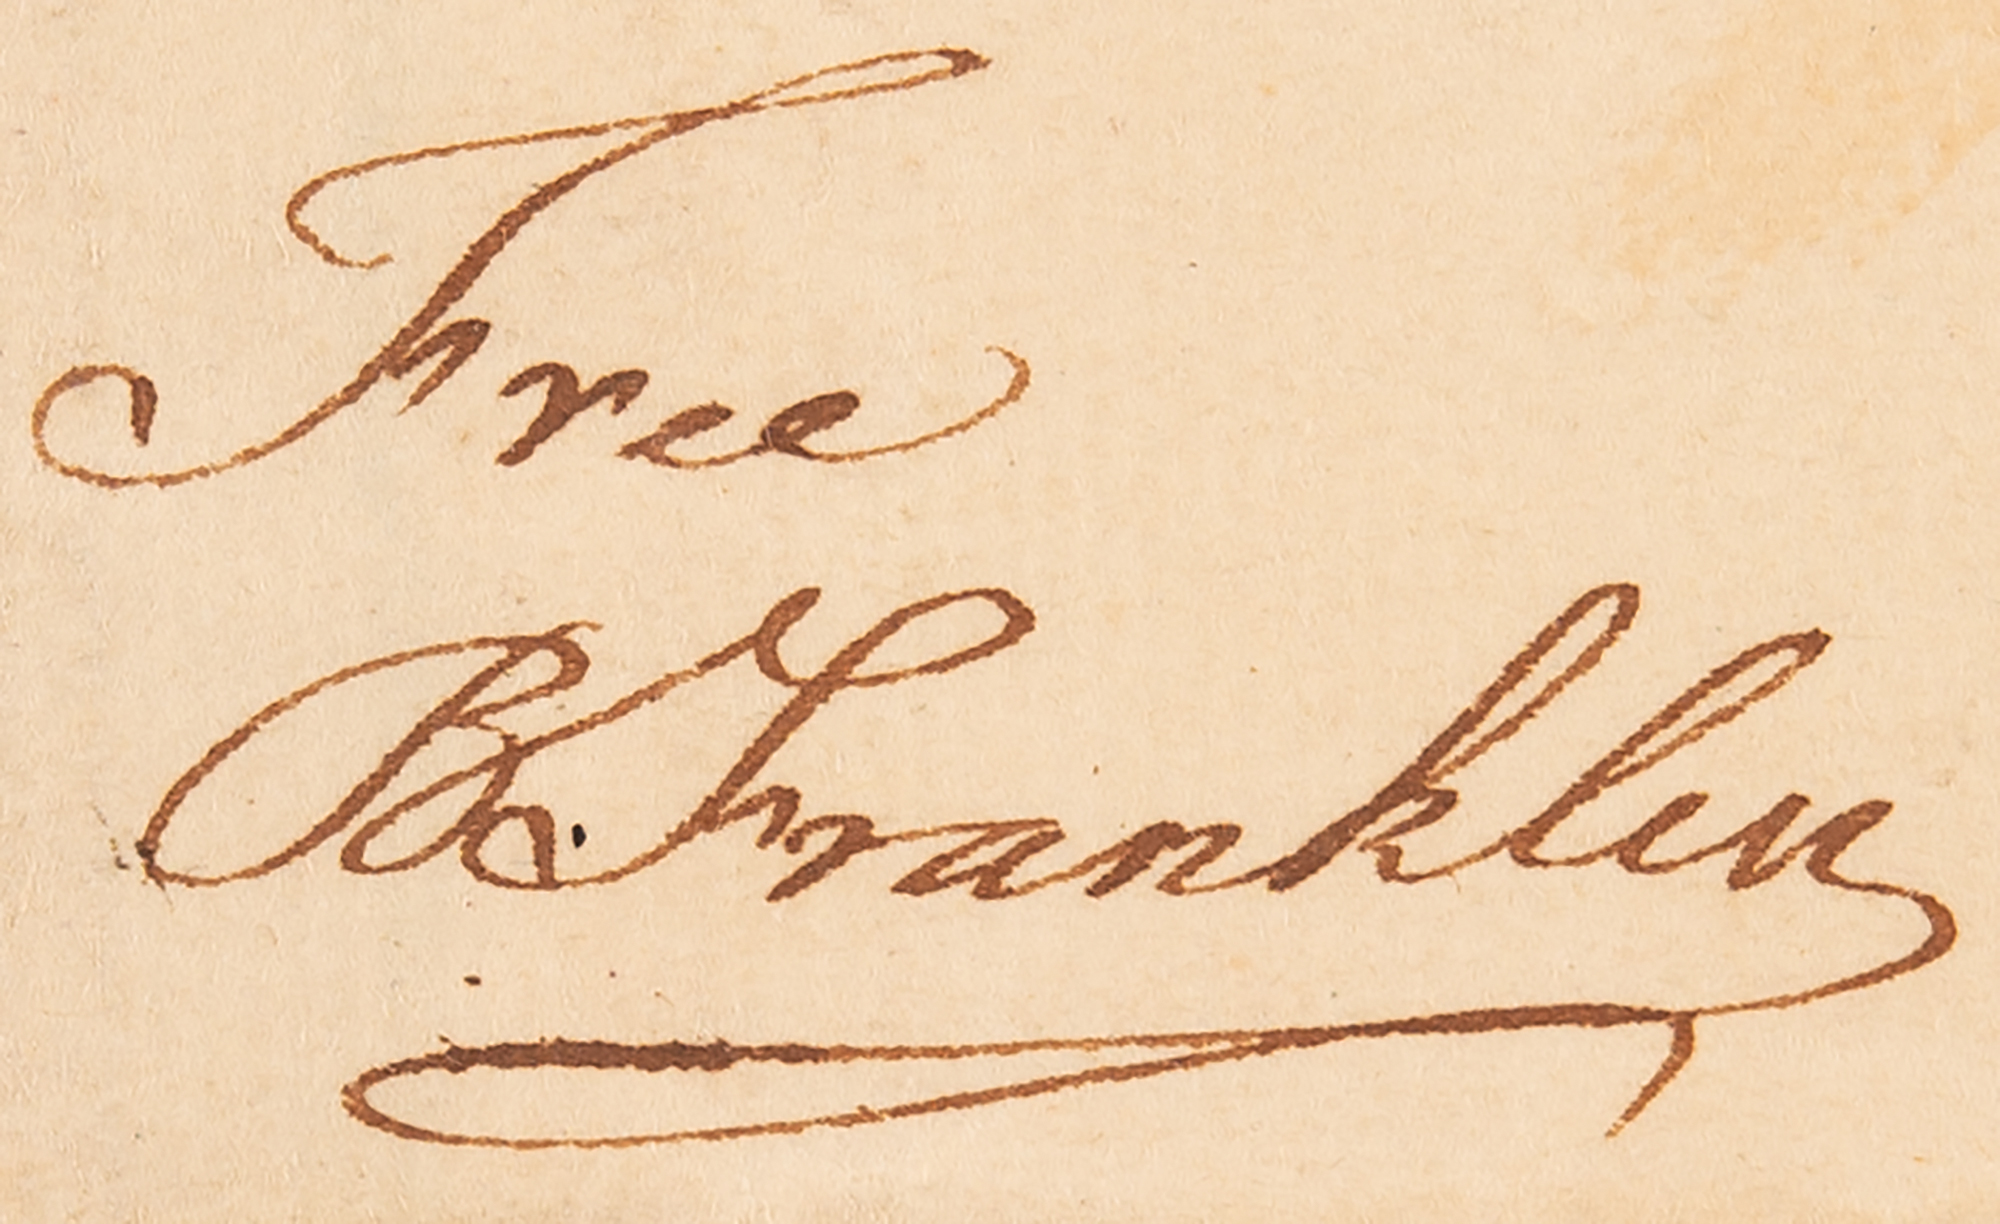 Free
B Franklin